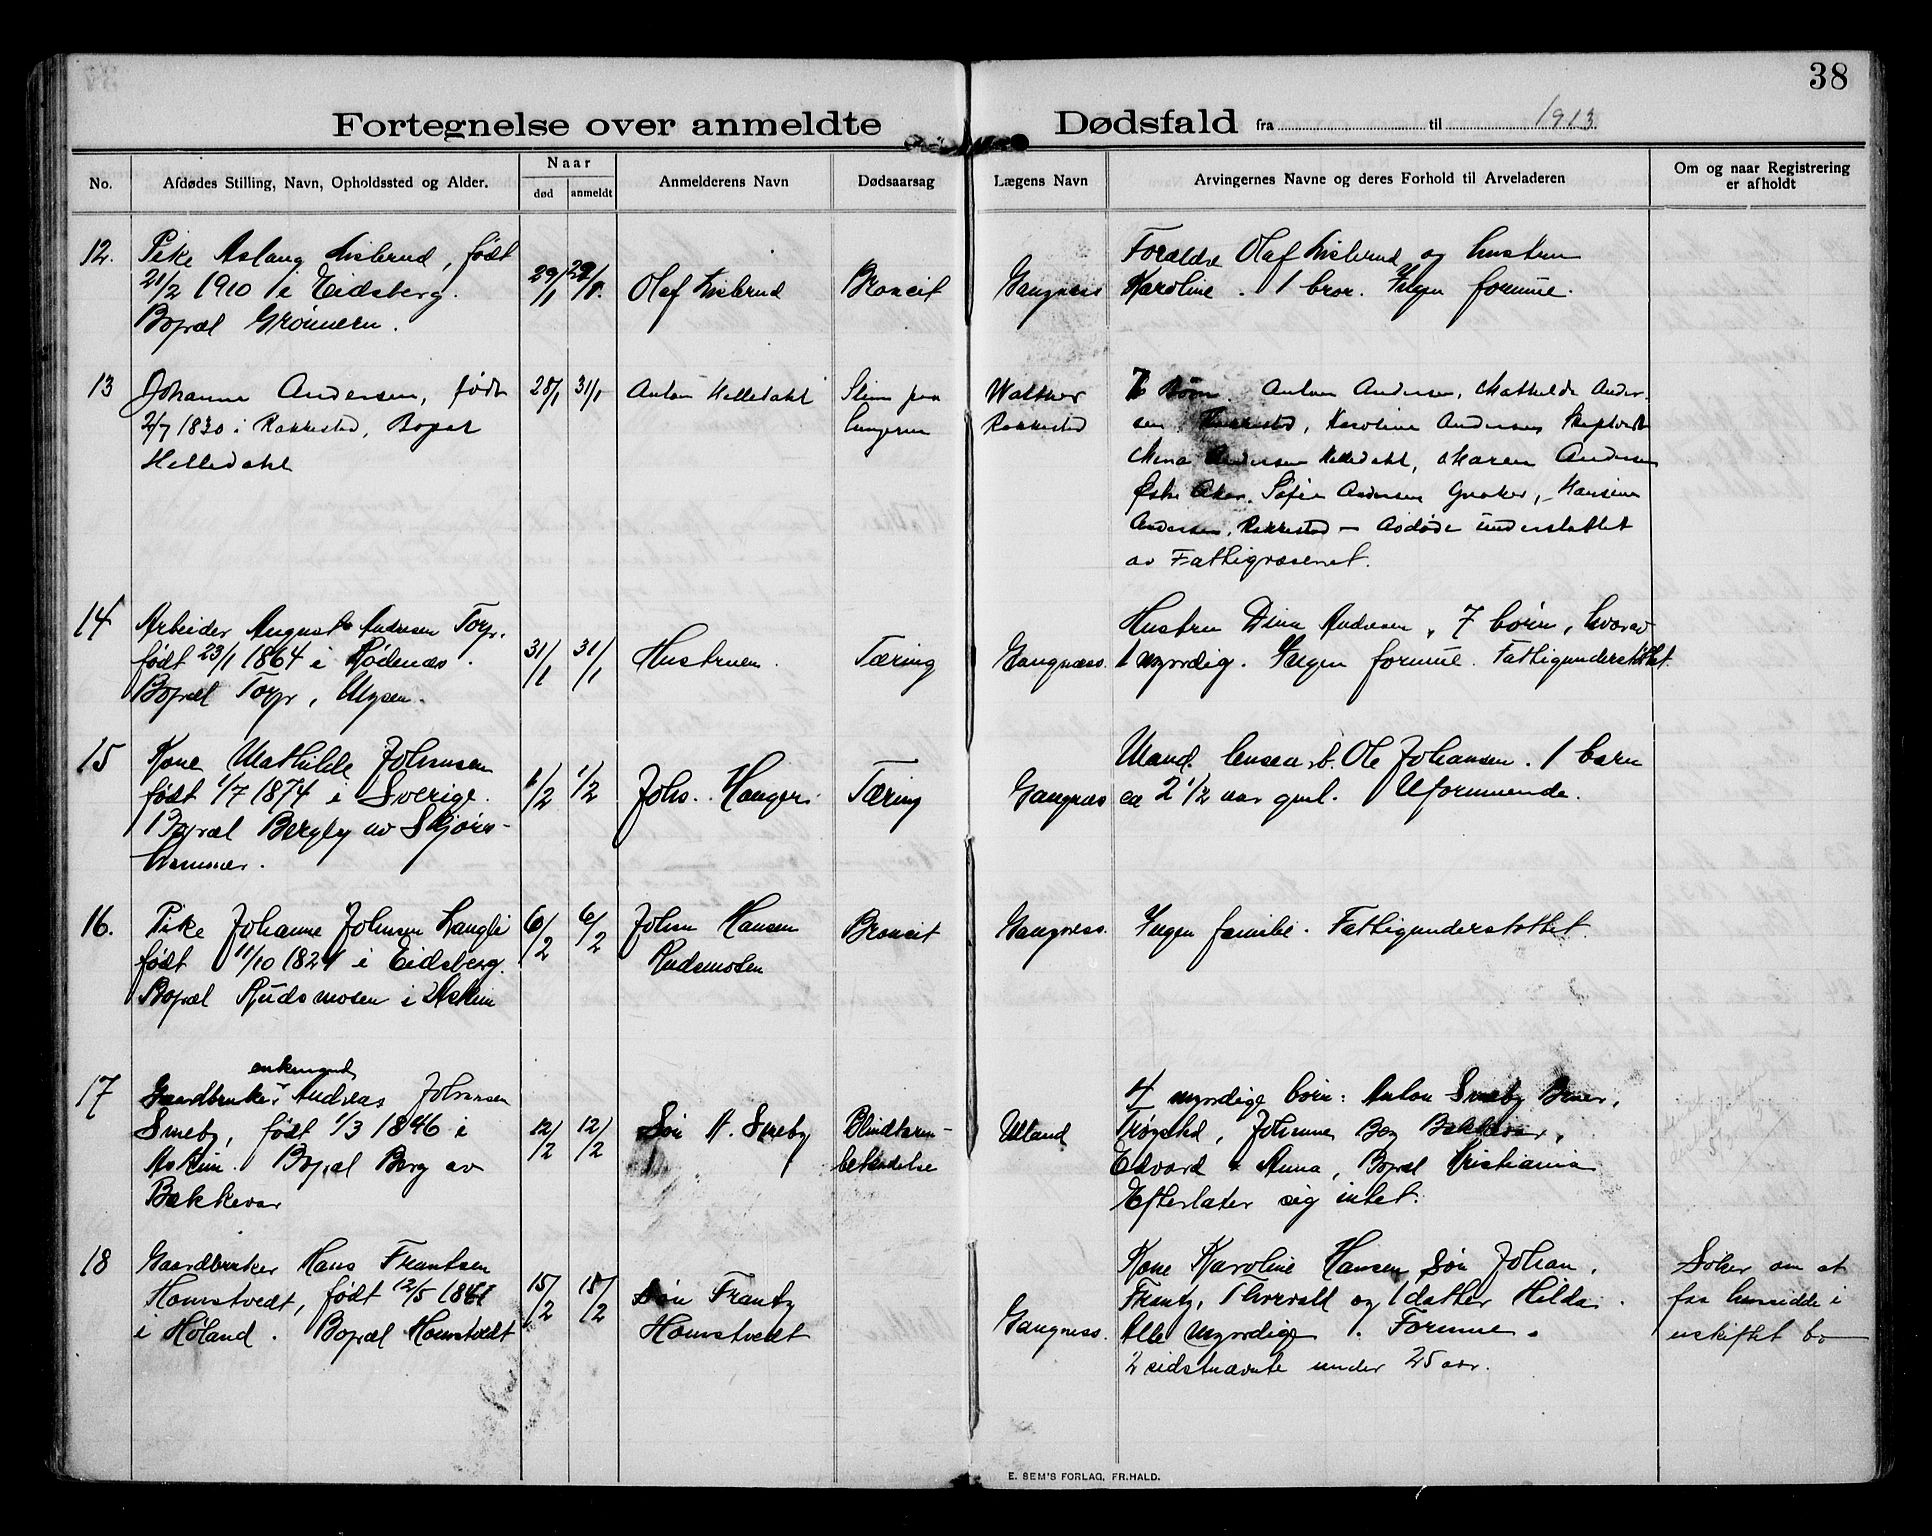 38
Fortegnelse over anmeldte Dødsfald fra til 1913.
No.
Afdødes Stilling, Navn, Opholdssted og Alder.
Naar
død
anmeldt
Anmelderens Navn
Dødsaarsag
Lægens Navn
Arvingernes Navne og deres Forhold til Arveladeren
Om og naar Registrering
er afholdt
12.
Pike Aslaug Lislerud, født
21/2 1910 i Eidsberg.
Bopæl Grønnern.
29/1
29/1.
Olaf Lislerud
Broncit
Gangnæss
Forældre Olaf Lislerud og hustru
Karoline. 1 bror. Ingen formue.
13
Johanne Andersen, født
2/7 1830 i Rakkestad, Bopæl
Helledahl
28/1
31/1
Anton Helledahl
Slim paa
lungerne
Walther
Rakkestad
7 Børn. Anton Andersen, Mathilde Ander-
sen Rakkestad, Karoline Andersen Skiptvedt
Mina Andersen Helledahl, Maren Andersen
Østre Aker. Sofie Andersen Greaker, Hansine
Andersen, Rakkestad — Avdøde understøttet
av Fattigvæsenet.
14
Arbeider August Andersen Torp,
født 23/1 1864 i Rødenæs.
Bopæl Torp, Mysen.
31/1
31/1
Hustruen.
Tæring
Gangnæss.
Hustru Dina Andersen, 7 børn, hvorav
1 myndig. Ingen formue. Fattigunderstøttet.
15
Kone Mathilde Johansen
født 1/7 1874 i Sverige.
Bopæl Bergby av Skjøres-
hammer.
1/2
1/2
Johs. Hanger
Tæring
Gangnæs
Mand husarb. Ole Johansen. 1 barn
ca 2 1/2 aar gml. Uformuende.
16.
Pike Johanne Johnsen Langli
født 11/10 1821 i Eidsberg.
Bopæl Rudsmosen i Askim
6/2
6/2
Johan Hansen
Rudsmosen
Broncit
Gangness.
Ingen familie. Fattigunderstøttet.
17
enkemand
Gaardbruker Andreas Johansen
Smeby, født 1/3 1846 i
Askim. Bopæl Berg av
Bækkevar
12/2
12/2
Søn A. Smeby
Blindtarm-
betændelse
Ulland
4 myndige børn: Anton Smeby
Trøgstad, Johanne Berg Bækkevar,
Edvard & Anna, Bopæl Kristiania
Efterlater sig intet.
18
Gaardbruker Hans Frantsen
Homstvedt, født 12/5 1841
i Høland. Bopæl Homstvedt
15/2
15/2
Søn Frantz
Homstvedt
Gangness.
Kone Karoline Hansen Søn Johan,
Frantz, Thorvald og 1 datter Hilda.
Alle myndige. Formue.
2 sidstnævnte under 25 aar.
Søker om at
faa hensidde i
uskiftet bo
E. SEM'S FORLAG, FR.HALD.